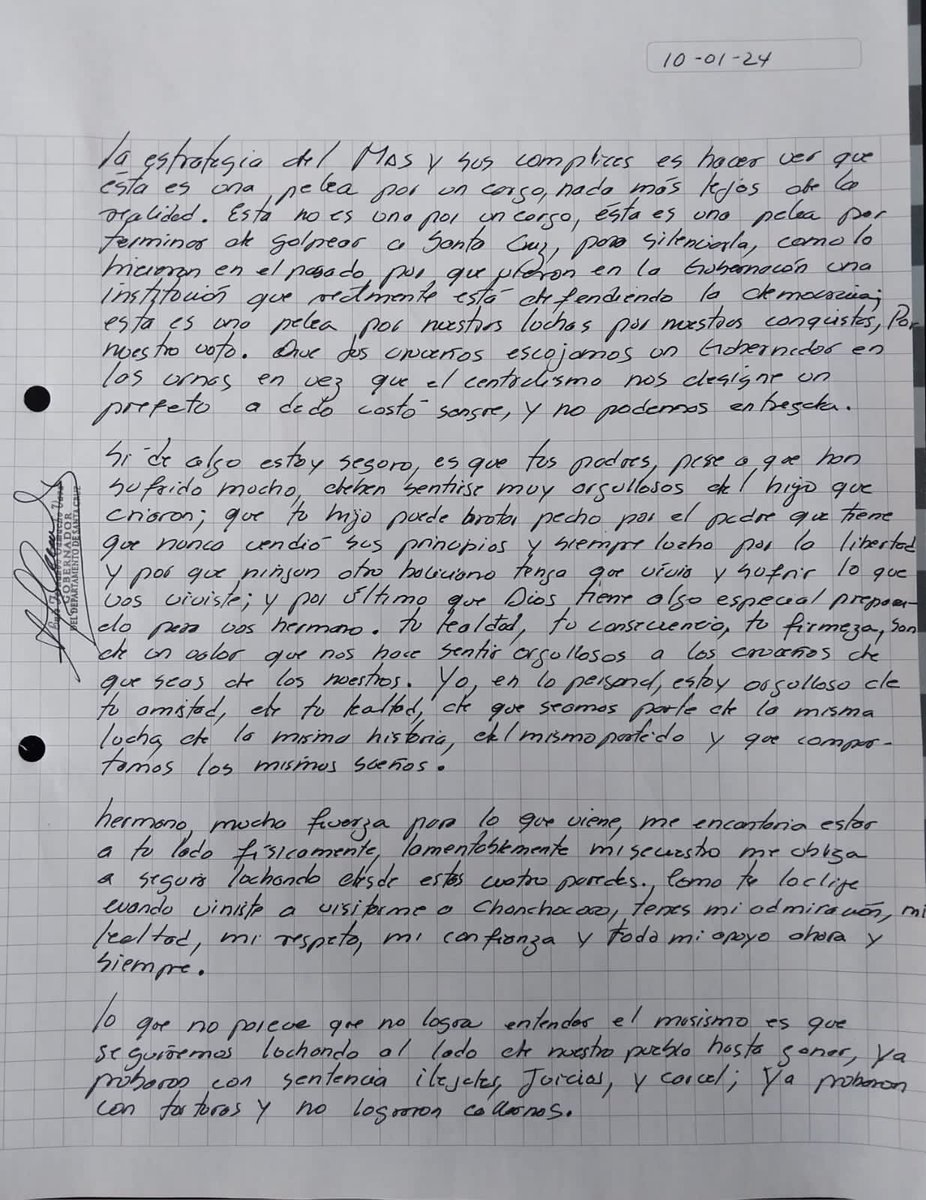 10-01-24
la estrategia del MAS y sus complices es hacer ver que
ésta es una pelea por un cargo, nada más lejos de la
realidad. Esta no es una por un cargo, ésta es una pelea por
terminar de golpear a Santa Cruz, para silenciarla, como lo
hicieron en el pasado, por que vieron en la Gobernación una
institución que realmente está defendiendo la democracia;
esta es una pelea por nuestras luchas por nuestras conquistas, Por
nuestro voto. Que los cruceños escojamos un Gobernador en
las urnas en vez que el centralismo nos designe un
prefeto a dedo costó sangre, y no podemos entregarla.
Si de algo estoy seguro, es que tus padres, pese a que han
sufrido mucho, deben sentirse muy orgullosos del hijo que
criaron; que tu hijo puede brotar pecho por el padre que tiene
que nunca vendió sus principios y siempre lucho por la libertad
y por que ningun otro boliviano tenga que vivir y sufrir lo que
vos viviste; y por último que Dios tiene algo especial prepara-
do para vos hermano. tu lealtad, tu consecuencia, tu firmeza, son
de un valor que nos hace sentir orgullosos a los cruceños de
que seas de los nuestros. Yo, en lo personal, estoy orgulloso de
tu amistad, de tu lealtad, de que seamos parte de la misma
lucha, de la misma historia, del mismo partido y que compar-
tamos los mismos sueños.
GOBERNADOR
DEL DEPARTAMENTO DE SANTA CRUZ
hermano, mucha fuerza para lo que viene, me encantaria estar
a tu lado físicamente, lamentablemente mi secuestro me obliga
a seguir luchando desde estas cuatro paredes., Como te lo dije
cuando viniste a visitarme a Chonchocoro, tenes mi admiración, mi
lealtad, mi respeto, mi confianza y todo mi apoyo ahora y
siempre.
lo que no parece que no logra entender el masismo es que
seguiremos luchando al lado de nuestro pueblo hasta ganar, ya
probaron con sentencia ilegales, Juicios, y carcel; ya probaron
con torturas y no lograron callarnos.